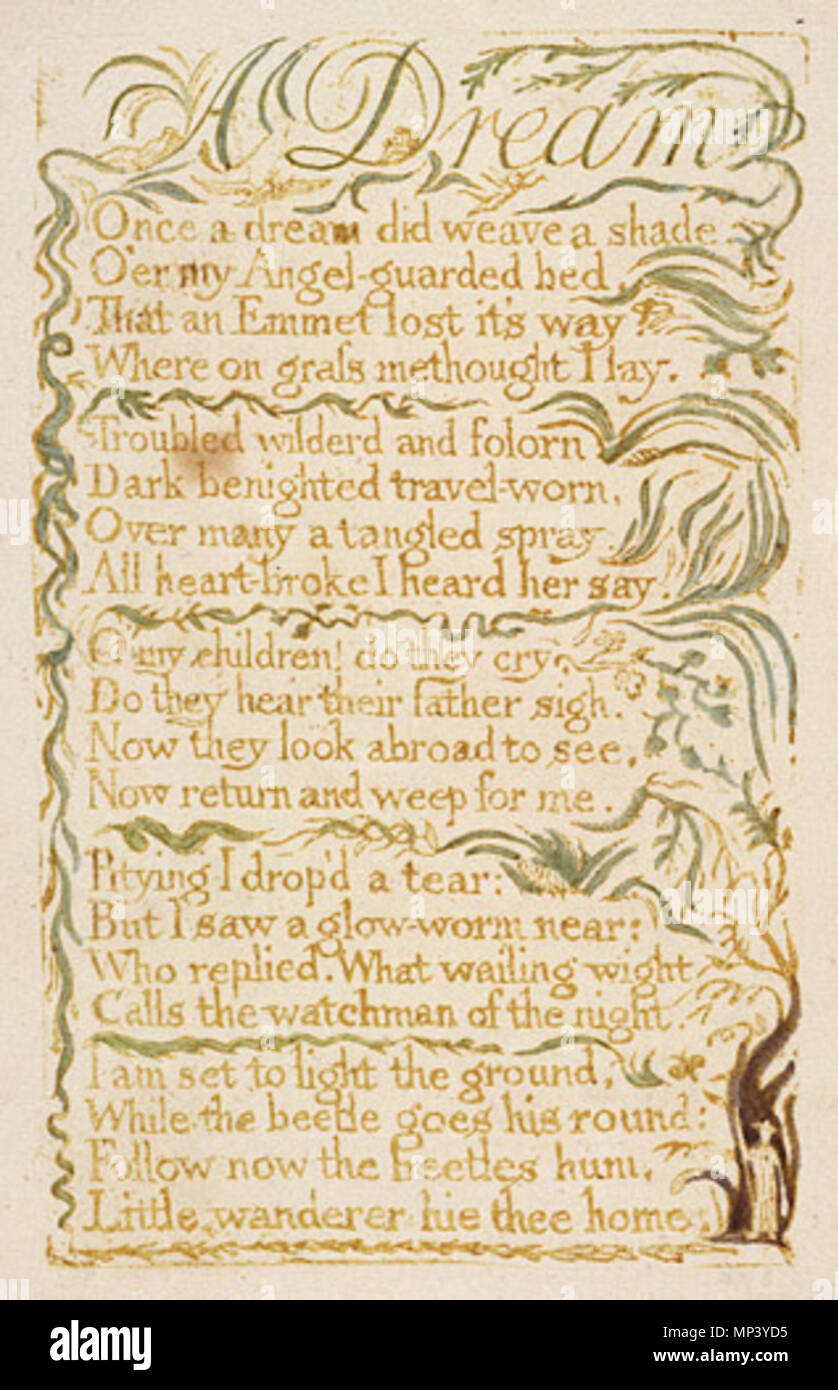 A Dream
Once a dream did weave a shade
O'er my Angel-guarded bed
That an Emmet lost it's way
Where on graſs methought I lay.
Troubled wilderd and folorn
Dark benighted travel-worn,
Over many a tangled spray
All heart-broke I heard her say.
O my children! do they cry,
Do they hear their father sigh.
Now they look abroad to see,
Now return and weep for me.
Pitying I drop'd a tear:
But I saw a glow-worm near:
Who replied. What wailing wight
Calls the watchman of the night.
I am set to light the ground,
While the beetle goes his round:
Follow now the beetles hum,
Little wanderer hie thee home.
alamy
alamy
Image ID: MP3YD5
www.alamy.com